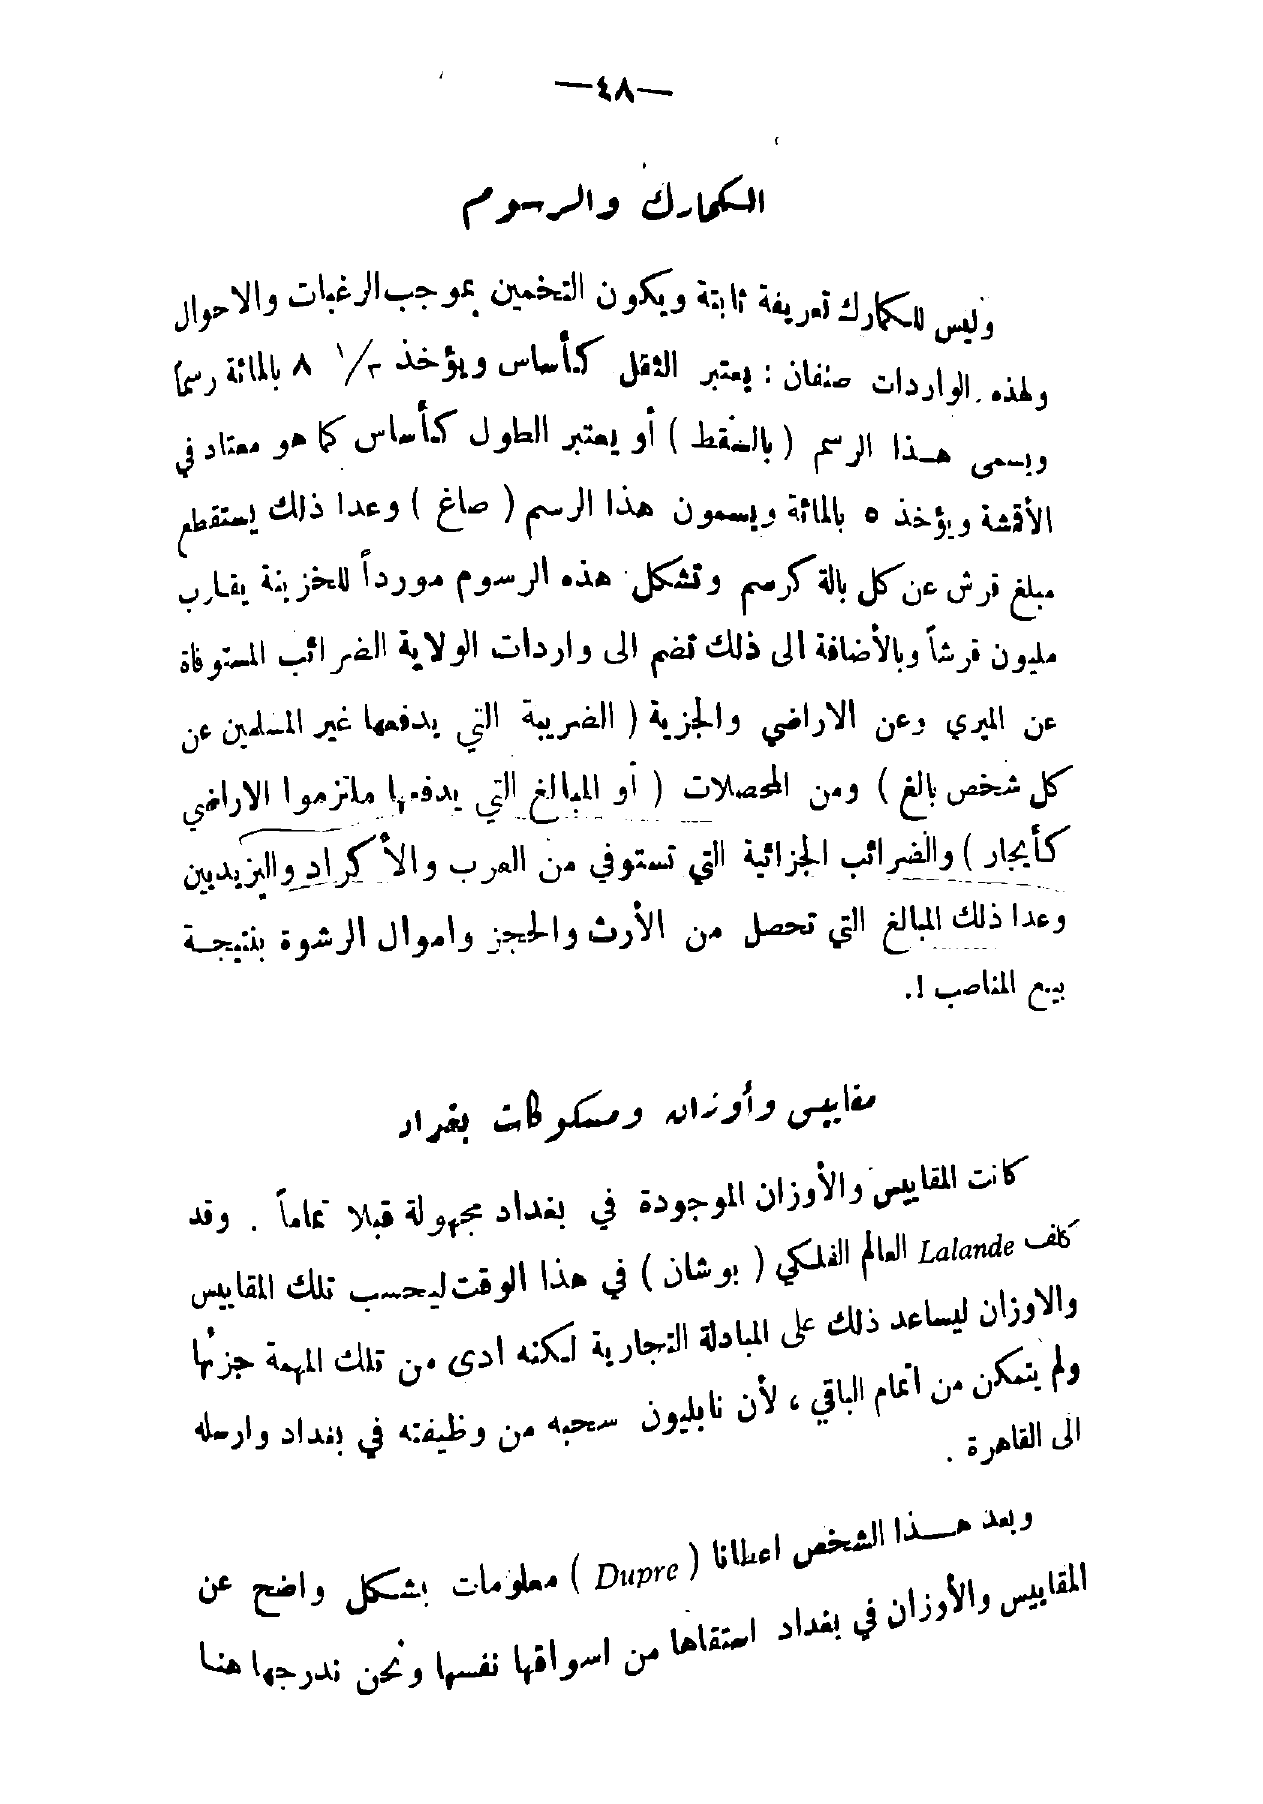 —٤٨—
الكمارك والرسوم
وليس للكمارك تعريفة ثابتة ويكون التخمين بموجب الرغبات والاحوال
ولهذه الواردات صنفان : يعتبر الثقل كأساس ويؤخذ ١/٢ ٨ بالمائة رسماً
ويسمى هذا الرسم ( بالنقط ) أو يعتبر الطول كأساس كما هو معتاد في
الأقمشة ويؤخذ ٥ بالمائة ويسمون هذا الرسم ( صاغ ) وعدا ذلك يستقطع
مبلغ قرش عن كل بالة كرسم وتشكل هذه الرسوم مورداً للخزينة يقارب
مليون قرشاً وبالأضافة الى ذلك تضم الى واردات الولاية الضرائب المستوفاة
عن الميري وعن الاراضي والجزية ( الضريبة التي يدفعها غير المسلمين عن
كل شخص بالغ ) ومن المحصلات ( أو المبالغ التي يدفعها ملتزموا الاراضي
كأيجار ) والضرائب الجزائية التي تستوفي من العرب والأكراد واليزيديين
وعدا ذلك المبالغ التي تحصل من الأرث والحجز واموال الرشوة بنتيجة
بيع المناصب !.
مقاييس وأوزان ومسكوكات بغداد
كانت المقاييس والأوزان الموجودة في بغداد مجهولة قبلا تماماً . وقد
كلف Lalande العالم الفلكي ( بوشان ) في هذا الوقت ليحسب تلك المقاييس
والاوزان ليساعد ذلك على المبادلة التجارية لكنه ادى من تلك المهمة جزئها
ولم يتمكن من اتمام الباقي ، لأن نابليون سحبه من وظيفته في بغداد وارسله
الى القاهرة .
وبعد هذا الشخص اعطانا ( Dupre ) معلومات بشكل واضح عن
المقاييس والأوزان في بغداد استقاها من اسواقها نفسها ونحن ندرجها هنا